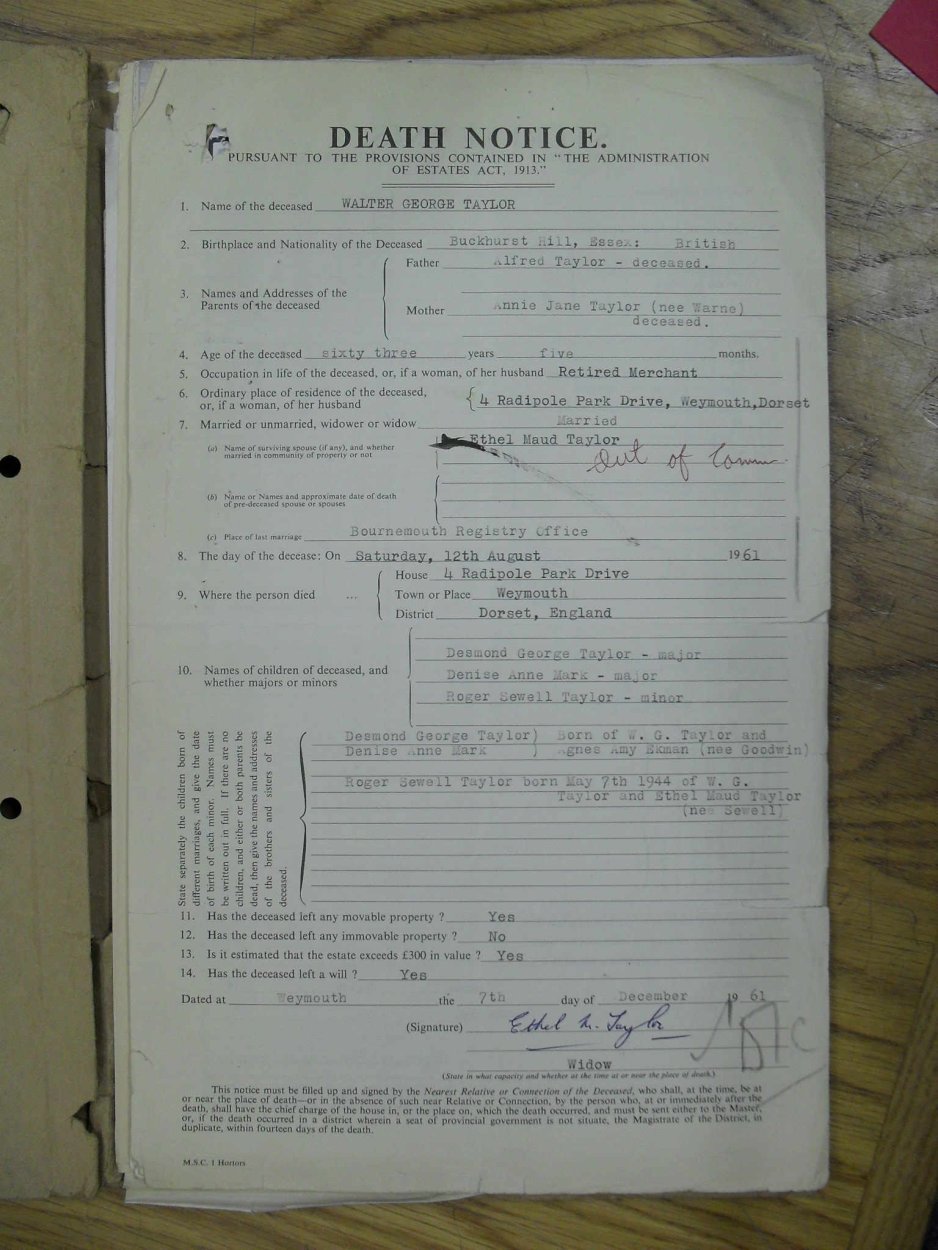 DEATH NOTICE.
PURSUANT TO THE PROVISIONS CONTAINED IN "THE ADMINISTRATION
OF ESTATES ACT, 1913."
1. Name of the deceased WALTER GEORGE TAYLOR
2. Birthplace and Nationality of the Deceased Buckhurst Hill, Essex: British
3. Names and Addresses of the Parents of the deceased
Father Alfred Taylor - deceased.
Mother Annie Jane Taylor (nee Warne)
deceased.
4. Age of the deceased sixty three years five months.
5. Occupation in life of the deceased, or, if a woman, of her husband Retired Merchant
6. Ordinary place of residence of the deceased,
or, if a woman, of her husband 4 Radipole Park Drive, Weymouth, Dorset
7. Married or unmarried, widower or widow Married
(a) Name of surviving spouse (if any), and whether
married in community of property or not
Ethel Maud Taylor
Out of Comm
(b) Name or Names and approximate date of death
of pre-deceased spouse or spouses
(c) Place of last marriage Bournemouth Registry Office
8. The day of the decease: On Saturday, 12th August 1961
9. Where the person died ...
House 4 Radipole Park Drive
Town or Place Weymouth
District Dorset, England
10. Names of children of deceased, and
whether majors or minors
Desmond George Taylor - major
Denise Anne Mark - major
Roger Sewell Taylor - minor
State separately the children born of
different marriages, and give the date
of birth of each minor. Names must
be written out in full. If there are no
children, and either or both parents be
dead, then give the names and addresses
of the brothers and sisters of the
deceased.
Desmond George Taylor) Born of W. G. Taylor and
Denise Anne Mark ) Agnes Amy Ekman (nee Goodwin)
Roger Sewell Taylor born May 7th 1944 of W. G.
Taylor and Ethel Maud Taylor
(nee Sewell)
11. Has the deceased left any movable property ? Yes
12. Has the deceased left any immovable property ? No
13. Is it estimated that the estate exceeds £300 in value ? Yes
14. Has the deceased left a will ? Yes
Dated at Weymouth the 7th day of December 1961
(Signature) Ethel M. Taylor
Widow
(State in what capacity and whether at the time at or near the place of death.)
This notice must be filled up and signed by the Nearest Relative or Connection of the Deceased, who shall, at the time, be at
or near the place of death—or in the absence of such near Relative or Connection, by the person who, at or immediately after the
death, shall have the chief charge of the house in, or the place on, which the death occurred, and must be sent either to the Master,
or, if the death occurred in a district wherein a seat of provincial government is not situate, the Magistrate of the District, in
duplicate, within fourteen days of the death.
M.S.C. 1 Hortors